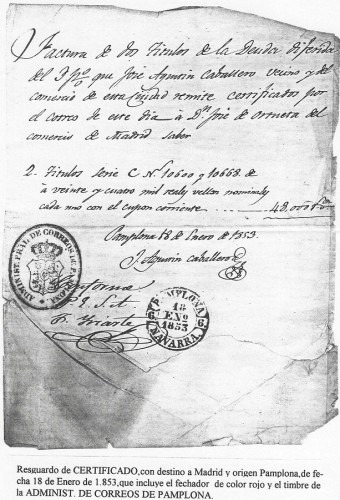 Factura de dos Titulos de la Deuda diferida
del 3 pº/o que José Agustin Caballero vecino y del
comercio de esta Ciudad remite certificados por
el correo de este dia à Dn. José de Ortueta del
comercio de Madrid saber
2. Titulos serie C Nº 10600 y 10668 de
à veinte y cuatro mil reales vellon nominales
cada uno con el cupon corriente 48.000
Pamplona 18 de Enero de 1853.
J. Agustin Caballero
ADMINIST. PRAL. DE CORREOS DE PAMPLONA
Conforme
F. Yriarte
PAMPLONA
18
ENº
1853
NAVARRA.
Resguardo de CERTIFICADO,con destino a Madrid y origen Pamplona,de fe-
cha 18 de Enero de 1.853,que incluye el fechador de color rojo y el timbre de
la ADMINIST. DE CORREOS DE PAMPLONA.